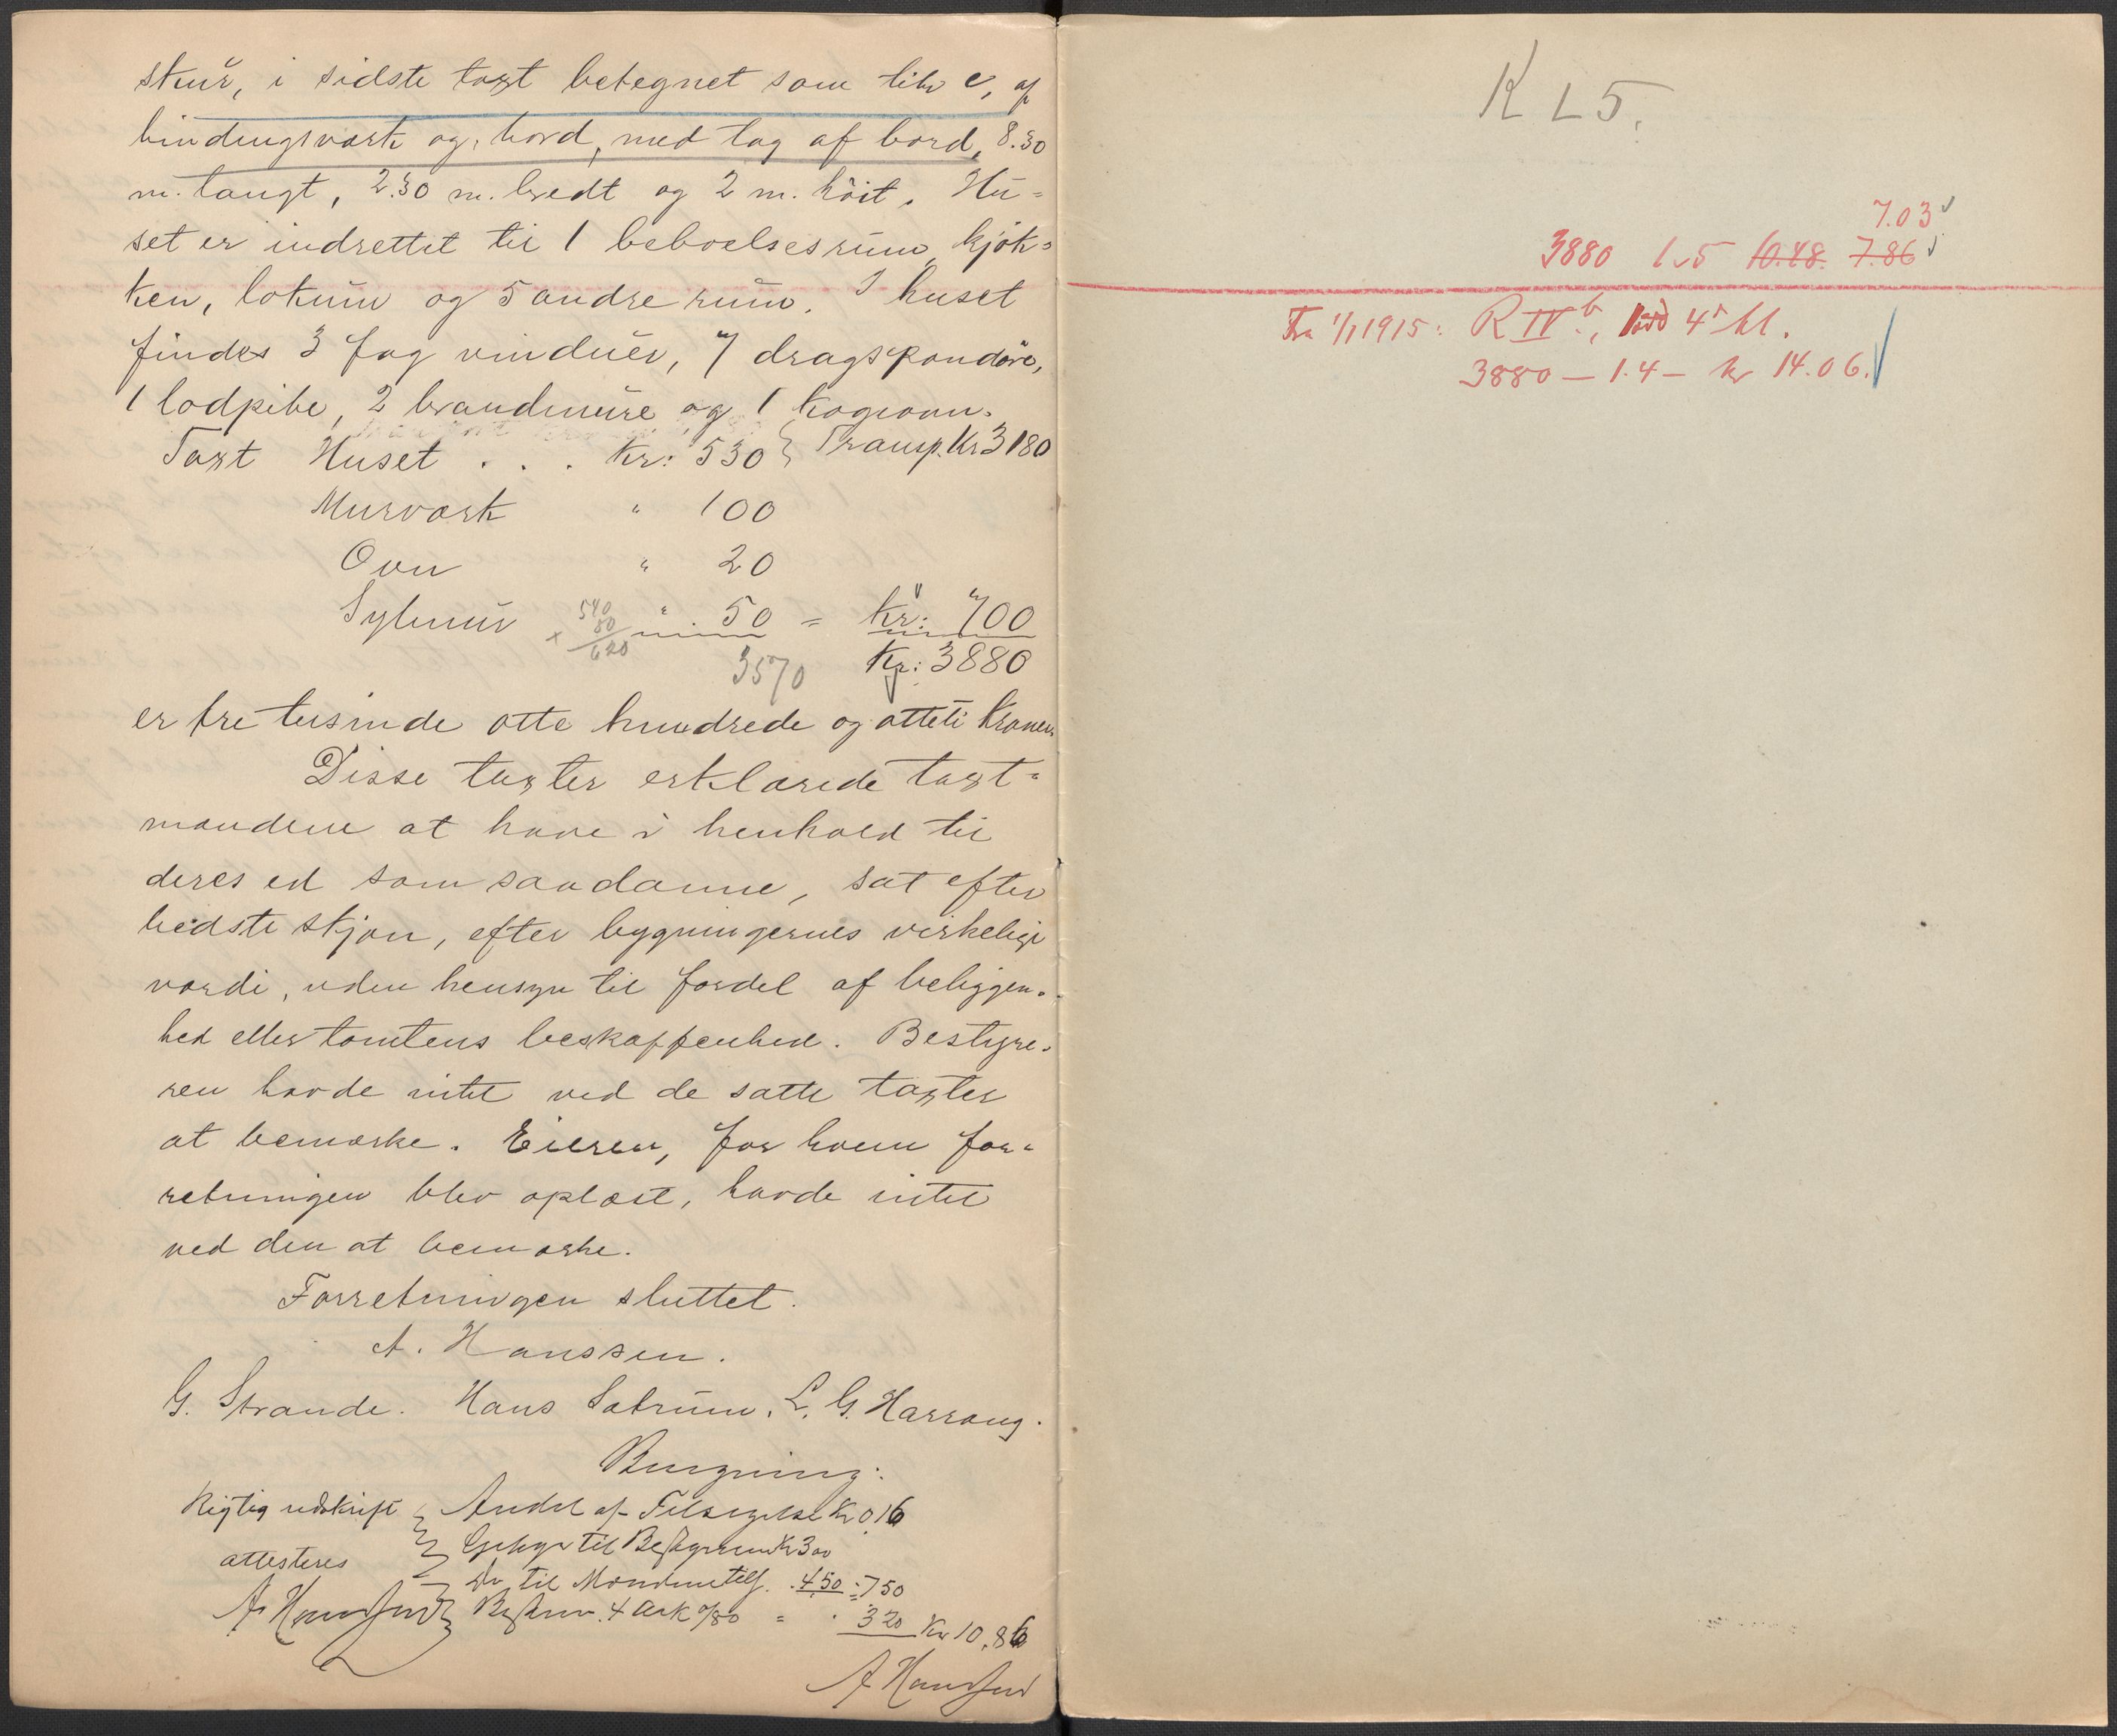 skur, i sidste taxt betegnet som litr c, af
bindingsværk og bord, med tag af bord, 8.30
m. langt, 2.30 m. bredt og 2 m. höit. Hu-
set er indrettet til 1 beboelsesrum, kjök-
ken, lokum og 5 andre rum. I huset
findes 3 fag vinduer, 7 dragspændöre,
1 lodpibe, 2 brandmure og 1 kogeovn.
Taxt Huset . . . Kr: 530 } Transp. Kr 3180
Murværk " 100
Ovn " 20
Sylmur " 50 = Kr: 700
540
80
x 620
3570 Kr: 3880
er tre tusinde otte hundrede og otteti Kroner
Disse taxter erklærede taxt-
mændene at have i henhold til
deres ed som saadanne, sat efter
bedste skjøn, efter bygningernes virkelige
værdi, uden hensyn til fordel af beliggen-
hed eller tomtens beskaffenhed. Bestyre-
ren havde intet ved de satte taxter
at bemærke. Eieren, for hvem for-
retningen blev oplæst, havde intet
ved den at bemærke.
Forretningen sluttet.
A. Hanssen.
G. Strande. Hans Satrum. L. G. Harrang.
Rigtig udskrift
attesteres
A Hanssen
Andel af Tilsigelse Kr 0,16
Gebyr til Bestyreren Kr 3 00
Do til Mændene tils. . 4,50 = 7 50
Beskriv. 4 Ark 0/80 = . 3 20 Kr 10,86
A Hanssen
K L 5.
7.03
3880 1.5 10.48. 7.86
Fra 1/1 1915: R IV b, 4 kl.
3880 — 1.4 — kr 14.06.